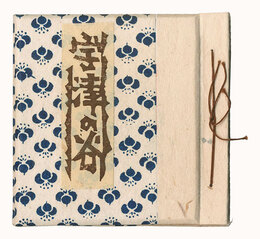 宇津の谷